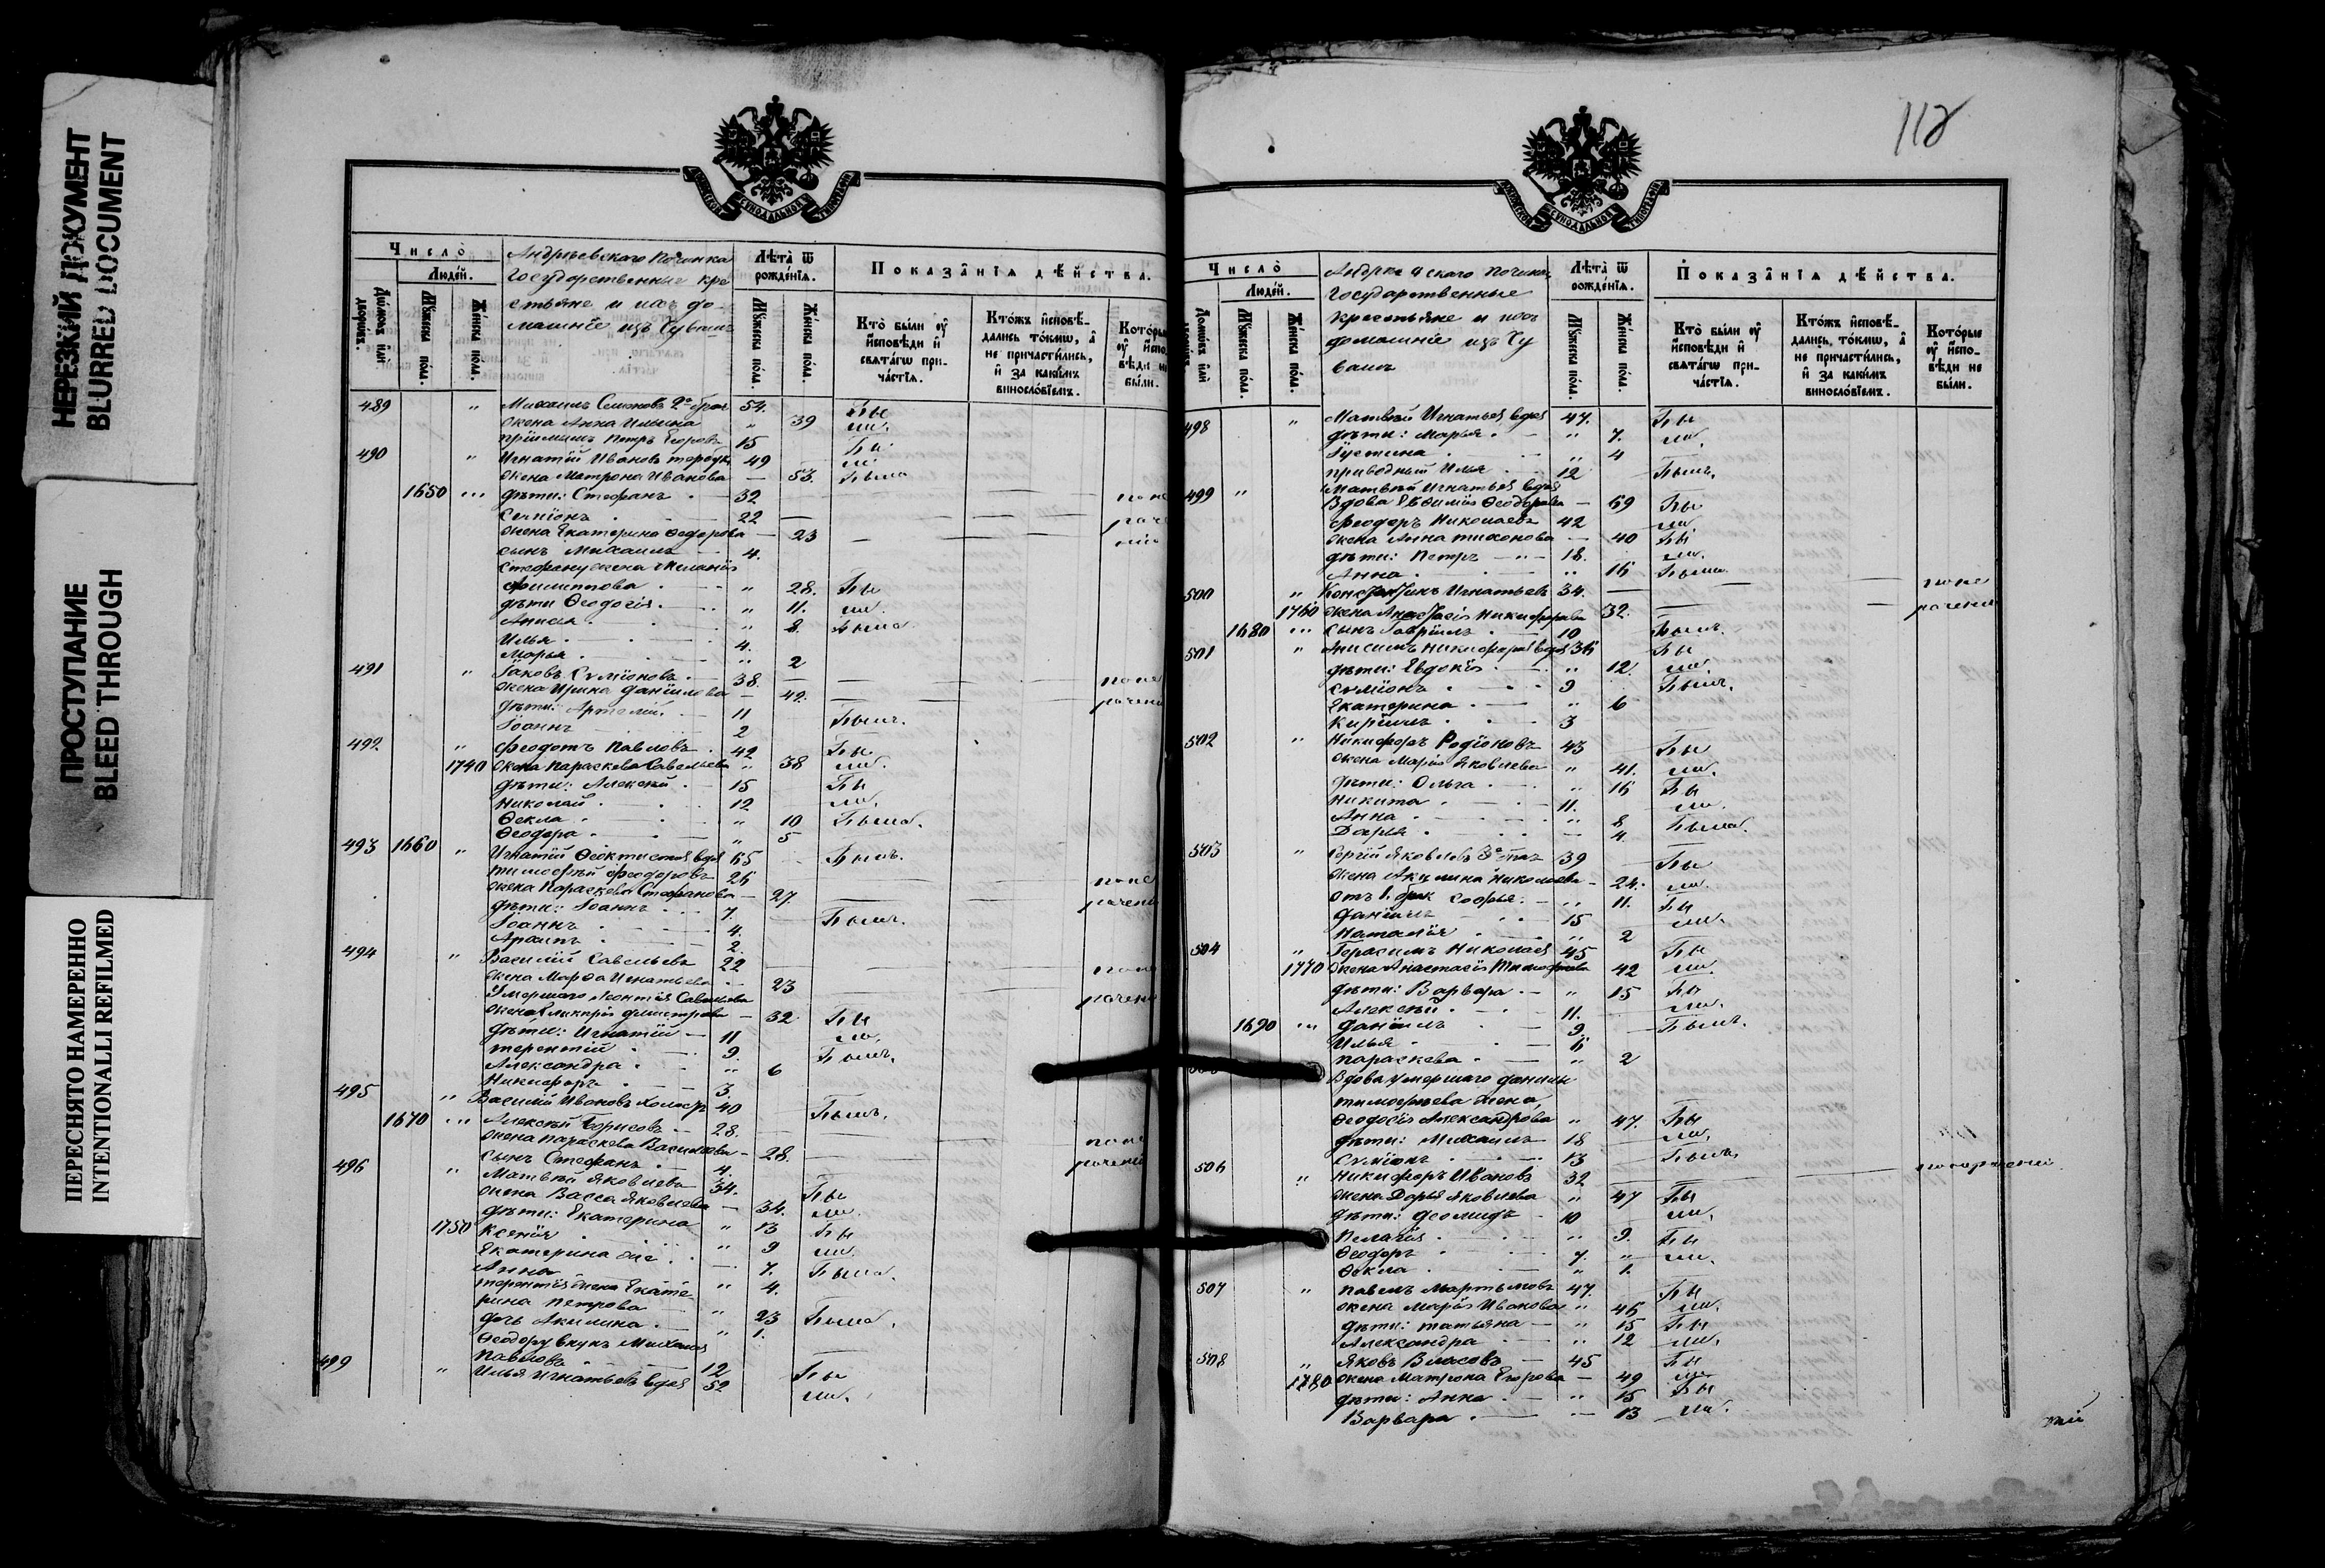 НЕРЕЗКИЙ ДОКУМЕНТ
BLURRED DOCUMENT
ПРОСТУПАНИЕ
BLEED THROUGH
ПЕРЕСНЯТО НАМЕРЕННО
INTENTIONALLI REFILMED
Число̀
Людей.
Мꙋжеска пола.
Женска пола.
Андреевскаго Починка
Государственные кре
стьяне и ихъ до-
машніе изъ Чувашъ
Лѣта̀ ѿ рожденїѧ.
Мꙋжеска пола.
Женска пола.
Показанїѧ дѣйства.
Кто̀ были ᲂу҆ исповѣди и свѧтагѡ причастїѧ.
Ктожъ исповѣдались токмѡ, а не причастились, и за какимъ винословїемъ.
489 " Михаилъ Семеновъ 2 брач 54. Бы
жена Анна Ильина " 39 ли.
пріимышъ Петръ Егоровъ 15 Бы
490 " Игнатій Ивановъ 49 ли.
жена Матрона Иванова — 53. Была
1650 дѣти: Стефанъ 32
22
жена Екатерина Ѳедорова — 23
сынъ Михаилъ 4.
Филиппова " 28. Бы
дѣти Ѳеодосія " 11. ли.
Анисія " 8. Была
Илья 4.
Марья " 2
491 " Іаковъ Сумеоновъ 38.
жена Ирина Даніилова — 42.
дѣти: Артемій 11 Былъ.
Іоаннъ 2
492 " Феодотъ Павловъ 42 Бы
1740 жена Параскева Савельева " 38 ли.
дѣти: Алексѣй 15 Бы
Николай 12 ли.
Ѳекла " 10 Была.
Ѳеодора " 5
493 1660 " Игнатій Ѳеоктистовъ вдов 65 Былъ.
Тимоѳей Феодоровъ 26
жена Параскева Стефанова — 27.
дѣти: Іоаннъ 7. Былъ.
Іоаннъ 4.
2.
494 " Василій Савельевъ 22
жена Марѳа Игнатьева — 23
Умершаго Леонтія Савельева
жена Гликерія Димитріева — 32 Бы
дѣти: Игнатій — 11 ли.
Терентій 9. Былъ.
Александра " 6
Никифоръ 3.
495 " Василій Ивановъ холост 40 Былъ.
1670 Алексѣй Борисовъ 28.
жена Параскева Васильева — 28.
сынъ Стефанъ 4.
496 " Матвѣй Яковлевъ 34. Бы
жена Васса Яковлева — 34. ли.
дѣти: Екатерина " 13 Бы
1750 Ксенія " 9 ли.
Екатерина 7. Была.
Анна " 4.
Терентія жена Екате-
рина Петрова " 23 Была.
дочь Акилина " 1.
Ѳеодору внукъ Михаилъ
Павловъ 12 Бы
499 " Илья Игнатьевъ вдов 52 ли.
112
Число̀
Людей.
Мꙋжеска пола.
Женска пола.
Государственные
крестьяне и ихъ
домашніе изъ Чу
вашъ
Лѣта̀ ѿ рожденїѧ.
Мꙋжеска пола.
Женска пола.
Показанїѧ дѣйства.
Кто̀ были ᲂу҆ исповѣди и свѧтагѡ причастїѧ.
Ктожъ исповѣдались токмѡ, а не причастились, и за какимъ винословїемъ.
Которые ᲂу҆ исповѣди не были.
498 " Матвѣй Игнатьев вдов 47. Бы
дѣти: Марья " 7. ли.
Густина " 4
приводный Илья 12 Былъ.
Матвѣй Игнатьев вдов
499 " Вдова Евѳимія Ѳеодорова — 69 Бы
Феодоръ Николаевъ 42 ли.
жена Анна Тихонова — 40 Бы
дѣти: Петръ 18. ли.
Анна " 16 Была.
500 " Константинъ Игнатьевъ 34.
1760 жена Анастасія Никифорова 32.
1680 сынъ Гавріилъ 10 Былъ.
501 " Анисимъ Никифоров вдов 36 Бы
дѣти: Евдокія " 12. ли.
Сумеонъ 9 Былъ.
Екатерина " 6
Кириллъ 3
502 " Никифоръ Родіоновъ 43 Бы
жена Марія Яковлева " 41. ли.
дѣти: Ольга " 16 Бы
Никита 11. ли.
Анна " 8 Была.
Дарья — 4.
503 " Сергій Яковлевъ 39 Бы
жена Акилина Николаева — 24. ли.
отъ 1 брак Софья " 11. Бы
Даніилъ 15 ли.
Наталія " 2
504 " Герасимъ Николаев 45 Бы
1770 жена Анастасія Тимофеева 42 ли.
дѣти: Варвара " 15 Бы
Алексѣй 11. ли.
1690 Даніилъ 9. Былъ.
Илья 6
Параскева " 2
Вдова умершаго Данилы
Тимофѣева жена
Ѳеодосія Александрова " 47. Бы
дѣти: Михаилъ 18 ли.
Сумеонъ 13 Былъ.
506 " Никифоръ Ивановъ 32
жена Дарья Яковлева " 47 Бы
дѣти: Деомидъ 10 ли.
Пелагія " 9. Бы
Ѳеодоръ 7. " ли.
Ѳекла " 1.
507 " Павелъ Мартыновъ 47. Бы
жена Марія Иванова " 46 ли.
дѣти: Татьяна " 15 Бы
Александра " 12 ли.
508 " Яковъ Власовъ 45 Бы
1780 жена Матрона Егорова — 49 ли.
дѣти: Анна " 15 Бы
Варвара — 13 ли.